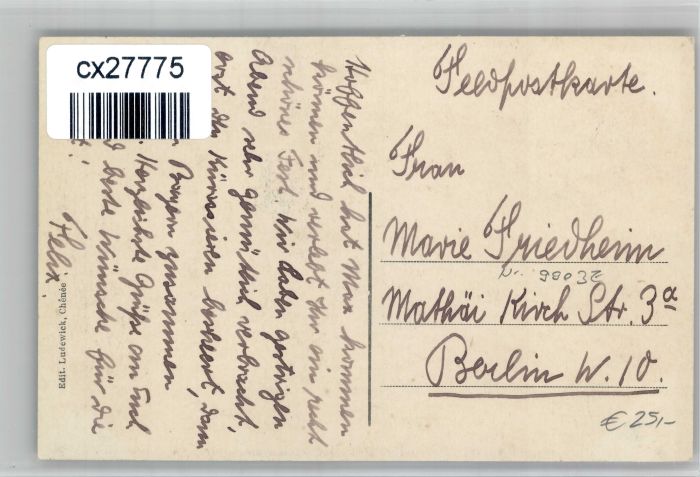 cx27775
Feldpostkarte.
Frau
Marie Friedheim
Nr. 98032
Mathäi Kirch Str. 3a
Berlin W. 10.
€ 25,-
Hoffentlich hat Max kommen
können und verlebt Ihr ein recht
schönes Fest. Wir haben gestrigen
Abend sehr gemütlich verbracht,
erst den Kürassieren beschert, dann
Bayern zusammen
Herzlichste Grüße an Euch
beste Wünsche für die
Felix.
Edit. Ludewick, Chênée